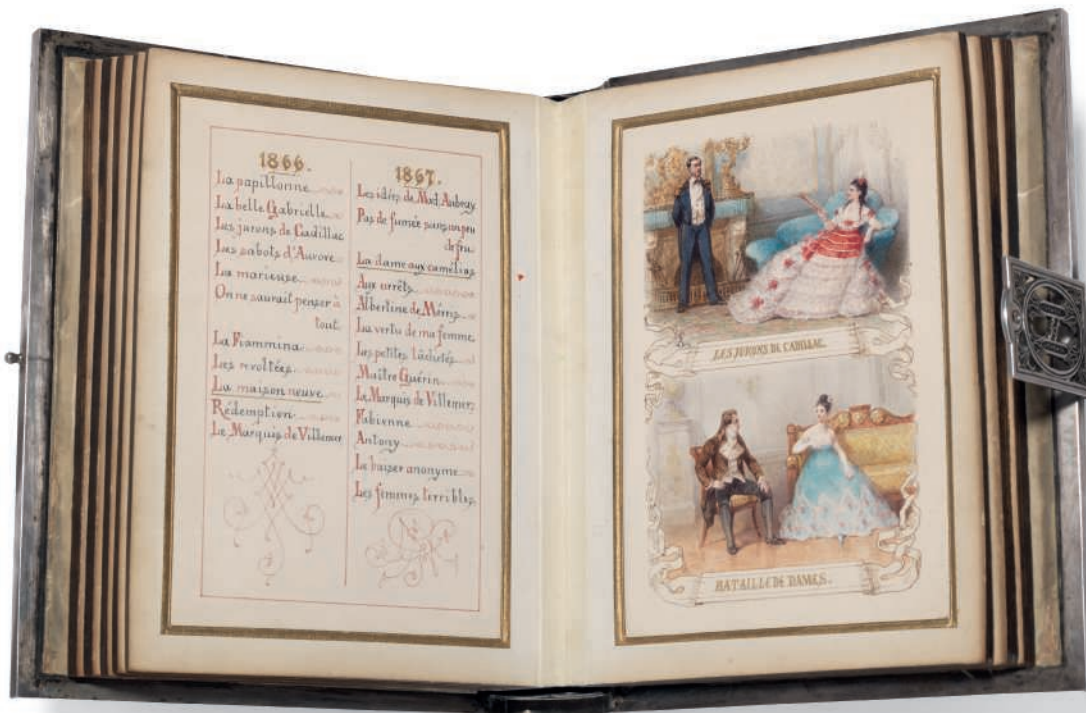 1866.
La papillonne
La belle Gabrielle
Les jurons de Cadillac
Les sabots d'Aurore
La marieuse
On ne saurait penser à
tout.
La Fiammina
Les révoltées
La maison neuve
Rédemption
Le Marquis de Villemer
1867.
Les idées de Mad. Aubray
Pas de fumée sans un peu
de feu
La dame aux camélias
Aux arrêts
Albertine de Merris
La vertu de ma femme.
Les petites lâchetés
Maître Guérin
Le Marquis de Villemer
Fabienne
Antony
Le baiser anonyme
Les femmes terribles
LES JURONS DE CADILLAC.
BATAILLE DE DAMES.